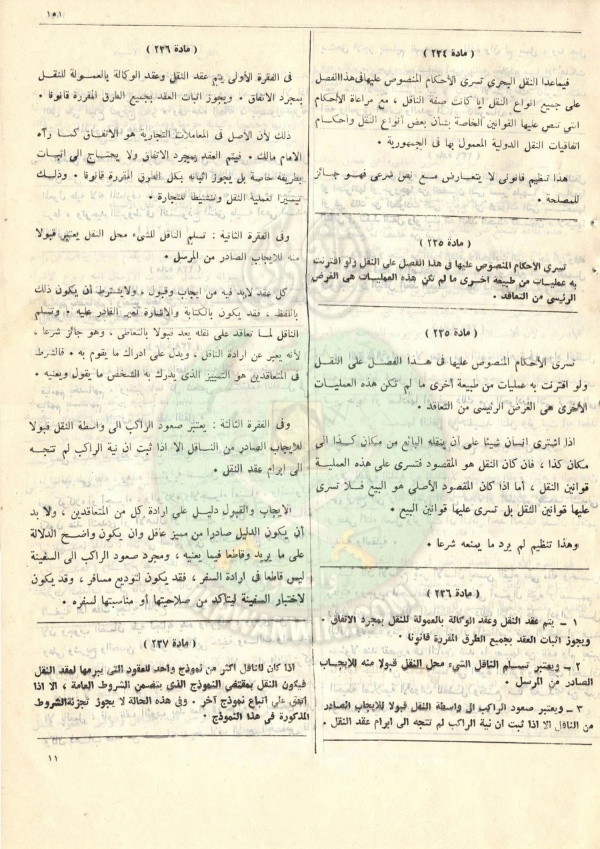 ١٥١
( مادة ٢٣٤ )
فيماعدا النقل البحرى تسرى الأحكام المنصوص عليها فى هذا الفصل
على جميع انواع النقل ايا كانت صفة الناقل ، مع مراعاة الأحكام
التى تنص عليها القوانين الخاصة بشأن بعض أنواع النقل وأحكام
اتفاقيات النقل الدولية المعمول بها فى الجمهورية .
هذا تنظيم قانونى لا يتعارض مع نص شرعى فهو جائز
للمصلحة .
( مادة ٢٣٥ )
تسرى الأحكام المنصوص عليها فى هذا الفصل على النقل ولو اقترنت
به عمليات من طبيعة أخرى ما لم تكن هذه العمليات هى الغرض
الرئيسى من التعاقد .
( مادة ٢٣٥ )
تسرى الأحكام المنصوص عليها فى هذا الفصل على النقل
ولو اقترنت به عمليات من طبيعة أخرى ما لم تكن هذه العمليات
الأخرى هى الغرض الرئيسى من التعاقد .
اذا اشترى انسان شيئا على أن ينقله البائع من مكان كذا الى
مكان كذا ، فان كان النقل هو المقصود فتسرى على هذه العملية
قوانين النقل ، أما اذا كان المقصود الأصلى هو البيع فلا تسرى
عليها قوانين النقل بل تسرى عليها قوانين البيع .
وهذا تنظيم لم يرد ما يمنعه شرعا .
( مادة ٢٣٦ )
١ – يتم عقد النقل وعقد الوكالة بالعمولة للنقل بمجرد الاتفاق .
ويجوز اثبات العقد بجميع الطرق المقررة قانونا .
٢ – ويعتبر تسلم الناقل الشىء محل النقل قبولا منه للايجاب
الصادر من المرسل .
٣ – ويعتبر صعود الراكب الى واسطة النقل قبولا للايجاب الصادر
من الناقل الا اذا ثبت ان نية الراكب لم تتجه الى ابرام عقد النقل .
( مادة ٢٣٦ )
فى الفقرة الأولى يتم عقد النقل وعقد الوكالة بالعمولة للنقل
بمجرد الاتفاق . ويجوز اثبات العقد بجميع الطرق المقررة قانونا .
ذلك لأن الأصل فى المعاملات التجارية هو الاتفاق كما رآه
الامام مالك . فيتم العقد بمجرد الاتفاق ولا يحتاج الى اثبات
بطريقة خاصة بل يجوز اثباته بكل الطرق المقررة قانونا . وذلك
تيسيرا لعملية النقل وتنشيطا للتجارة .
وفى الفقرة الثانية : تسلم الناقل للشىء محل النقل يعتبر قبولا
منه للايجاب الصادر من المرسل .
كل عقد لابد فيه من ايجاب وقبول ، ولايشترط أن يكون ذلك
باللفظ ، فقد يكون بالكتابة والاشارة لغير القادر عليه . وتسلم
الناقل لما تعاقد على نقله يعد قبولا بالتعاطى ، وهو جائز شرعا ،
لأنه يعبر عن ارادة الناقل ، ويدل على ادراك ما يقوم به . فالشرط
فى المتعاقدين هو التمييز الذى يدرك به الشخص ما يقول ويعنيه .
وفى الفقرة الثالثة : يعتبر صعود الراكب الى واسطة النقل قبولا
للايجاب الصادر من الناقل الا اذا ثبت ان نية الراكب لم تتجه
الى ابرام عقد النقل .
الايجاب والقبول دليل على ارادة كل من المتعاقدين ، ولا بد
أن يكون الدليل صادرا من مميز عاقل وان يكون واضح الدلالة
على ما يريد وقاطعا فيما يعنيه ، ومجرد صعود الراكب الى السفينة
ليس قاطعا فى ارادة السفر ، فقد يكون لتوديع مسافر ، وقد يكون
لاختبار السفينة ليتأكد من صلاحيتها أو مناسبتها لسفره .
( مادة ٢٣٧ )
اذا كان للناقل اكثر من نموذج واحد للعقود التى يبرمها لعقد النقل
فيكون النقل بمقتضى النموذج الذى يتضمن الشروط العامة ، الا اذا
اتفق على اتباع نموذج آخر . وفى هذه الحالة لا يجوز تجزئة الشروط
المذكورة فى هذا النموذج .
١١